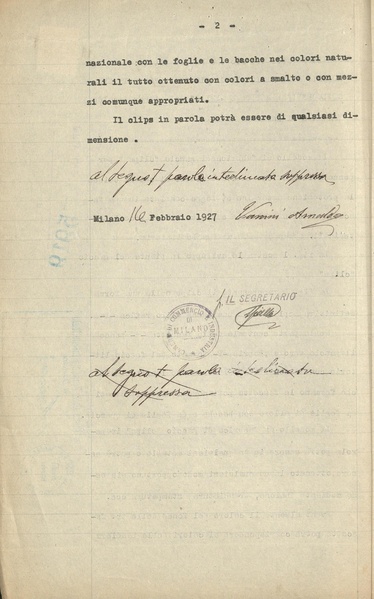 - 2 -
nazionale con le foglie e le bacche nei colori natu-
rali il tutto ottenuto con colori a smalto o con mez-
zi comunque appropriati.
Il clips in parola potrà essere di qualsiasi di-
mensione .
al segno + parola interlineata soppressa
Milano 16 Febbraio 1927 Vanini Arnaldo
IL SEGRETARIO
MILANO
al segno + parola interlineata
soppressa